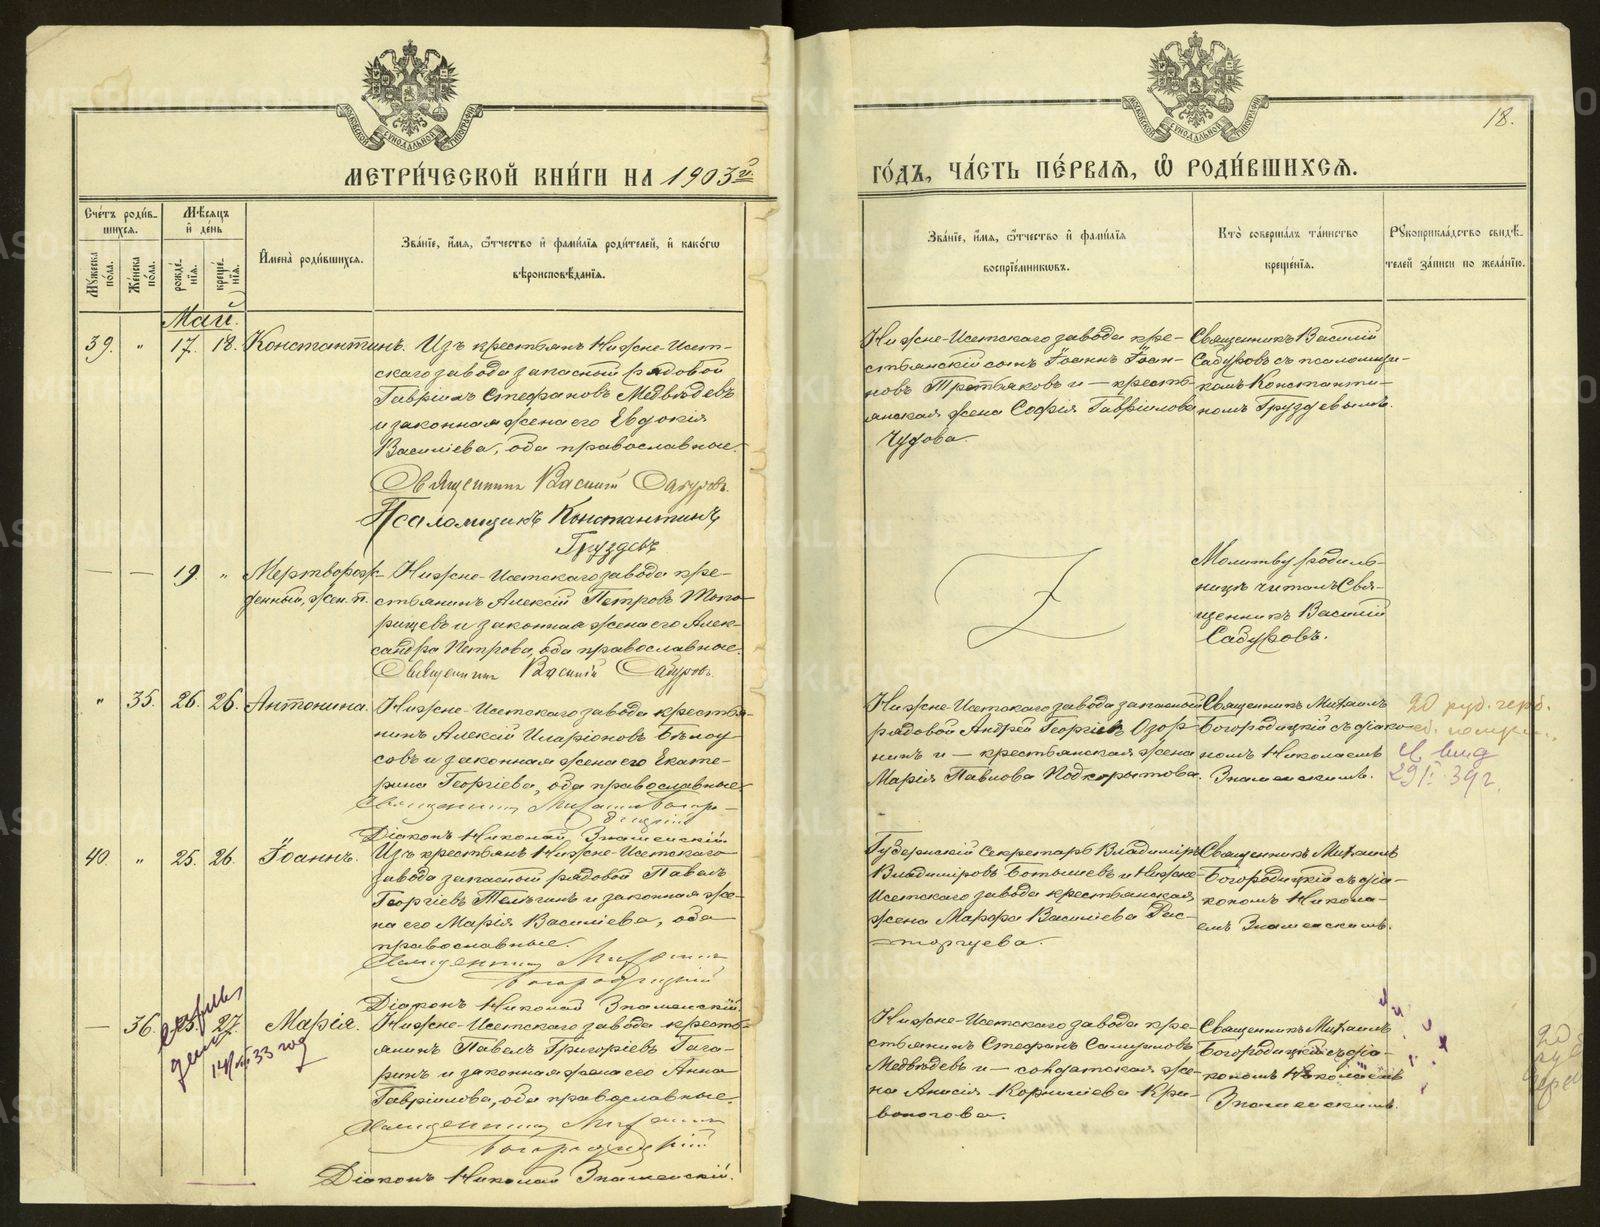 МЕТРИ́ЧЕСКОЙ КНИ́ГИ НА 1903й
ГО́ДЪ, ЧА́СТЬ ПЕ́РВАЯ, Ѿ РОДИ́ВШИХСЯ.
18.
Сче́тъ роди́в-
шихся.
Мѣ́сяцъ
и҆ де́нь
Му́жеска
по́ла.
Же́нска
по́ла.
рожде́-
нїя.
креще́-
нїя.
И҆мена̀ роди́вшихся.
Зва́нїе, и҆́мя, ѻ҆́тчество и҆ фами́лїя роди́телей, и҆ како́гѡ
вѣроисповѣ́данїя.
Зва́нїе, и҆́мя, ѻ҆́тчество и҆ фами́лїя
воспрїе́мникѡвъ.
Кто̀ соверша́лъ та́инство
креще́нїя.
Рꙋкоприкла́дство свидѣ́-
телей за́писи по жела́нїю.
Май.
39. " 17. 18. Константинъ.
Изъ крестьянъ Нижне-Исет-
скаго завода запасный рядовой
Гавріилъ Стефановъ Медвѣдевъ
и законная жена его Евдокія
Василіева, оба православные.
Священникъ Василій Сабуровъ.
Псаломщикъ Константинъ
Груздевъ
Нижне-Исетскаго завода кре-
стьянскій сынъ Іоаннъ Іоан-
новъ Третьяковъ и – кресть-
янская жена Софія Гавріилова
Чудова
Священникъ Василій
Сабуровъ съ псаломщи-
комъ Константи-
номъ Груздевымъ.
— — 19. " Мертворож-
денный, жен. п.
Нижне-Исетскаго завода кре-
стьянинъ Алексій Петровъ Топо-
рищевъ и законная жена его Алек-
сандра Петрова, оба православные.
Священникъ Василій Сабуровъ.
Молитву родиль-
ницѣ читалъ Свя-
щенникъ Василій
Сабуровъ.
" 35. 26. 26. Антонина.
Нижне-Исетскаго завода крестья-
нинъ Алексій Иларіоновъ Бѣлоу-
совъ и законная жена его Екате-
рина Георгіева, оба православные
Священникъ Михаилъ Богоро-
дицкій
Діаконъ Николай Знаменскій
Нижне-Исетскаго завода запасный
рядовой Андрей Георгіевъ Озор-
нинъ и – крестьянская жена
Марія Павлова Подкорытова.
Священникъ Михаилъ
Богородицкій съ діако-
номъ Николаемъ
Знаменскимъ.
20 руб. герб.
29/I 39 г.
40. " 25. 26. Іоаннъ.
Изъ крестьянъ Нижне-Исетскаго
завода запасный рядовой Павелъ
Георгіевъ Телѣгинъ и законная же-
на его Марія Василіева, оба
православные.
Священникъ Михаилъ
Богородицкій
Діаконъ Николай Знаменскій.
Губернскій Секретарь Владиміръ
Владиміровъ Ботышевъ и Нижне-
Исетскаго завода крестьянская
жена Марфа Василіева Рас-
торгуева.
Священникъ Михаилъ
Богородицкій съ діа-
кономъ Никола-
емъ Знаменскимъ.
— 36. 25. 27. Марія.
14/III 33 год
Нижне-Исетскаго завода кресть-
янинъ Павелъ Григоріевъ Гага-
ринъ и законная жена его Анна
Гавріилова, оба православные.
Священникъ Михаилъ
Богородицкій
Діаконъ Николай Знаменскій.
Нижне-Исетскаго завода кре-
стьянинъ Стефанъ Самуиловъ
Медвѣдевъ и – солдатская же-
на Анисія Корниліева Кри-
воногова.
Священникъ Михаилъ
Богородицкій съ діа-
кономъ Николаемъ
Знаменскимъ.